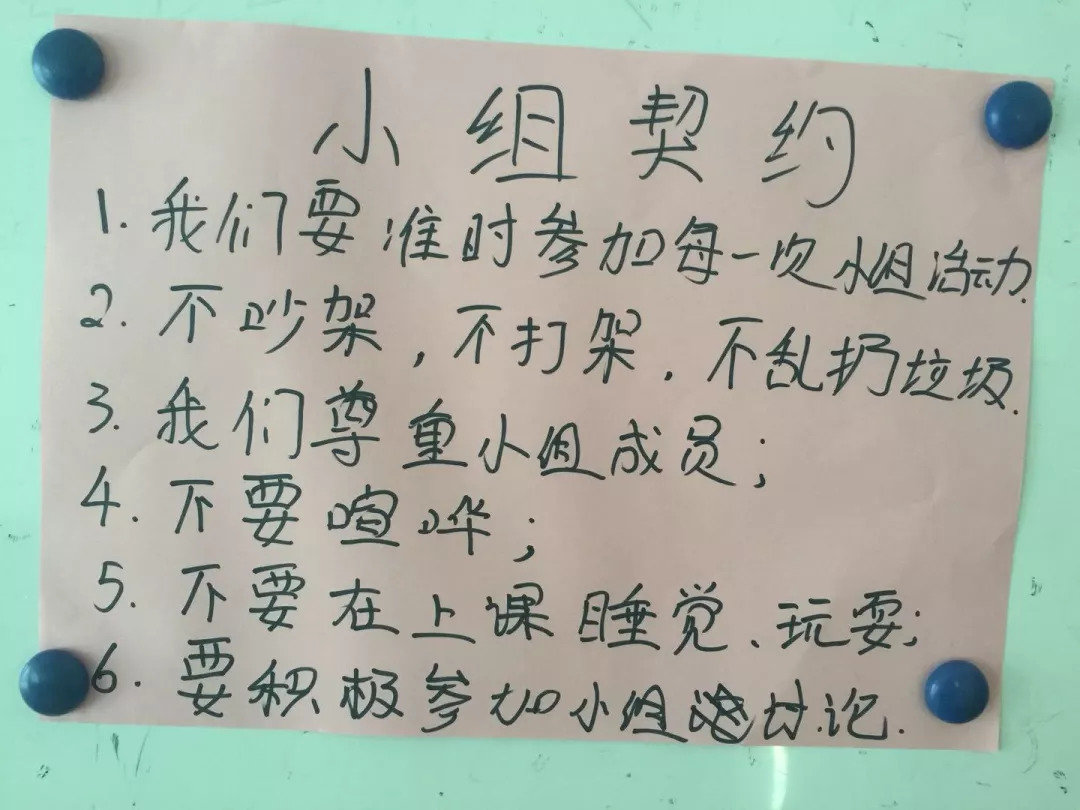 小组契约
1. 我们要准时参加每一次小组活动.
2. 不吵架，不打架，不乱扔垃圾.
3. 我们尊重小组成员；
4. 不要喧哗；
5. 不要在上课睡觉、玩耍；
6. 要积极参加小组讨论.